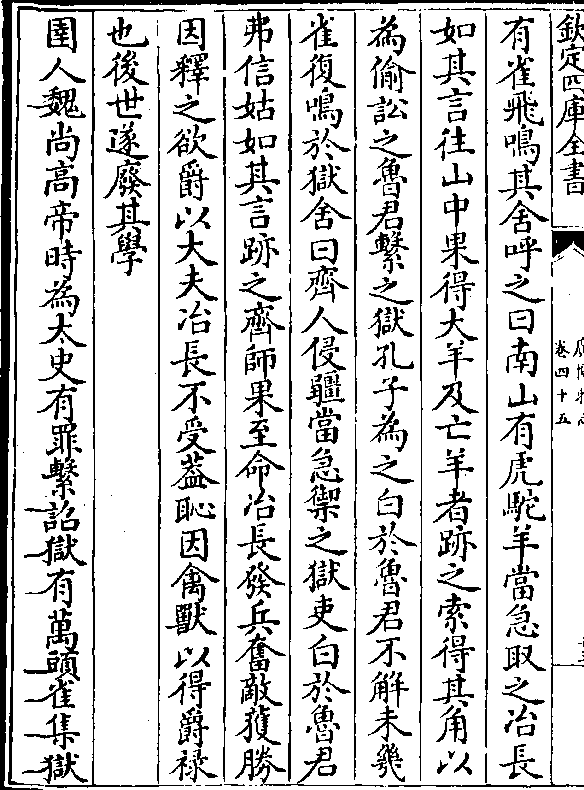 欽定四庫全書
卷四十五
有雀飛鳴其舍呼之曰南山有虎駝羊當急取之冶長
如其言往山中果得大羊及亡羊者跡之索得其角以
為偷訟之魯君繫之獄孔子為之白於魯君不解未幾
雀復鳴於獄舍曰齊人侵疆當急禦之獄吏白於魯君
弗信姑如其言跡之齊師果至命冶長發兵奮敵獲勝
因釋之欲爵以大夫冶長不受葢恥因禽獸以得爵祿
也後世遂廢其學
圉人魏尚高帝時為太史有罪繫詔獄有萬頭雀集獄